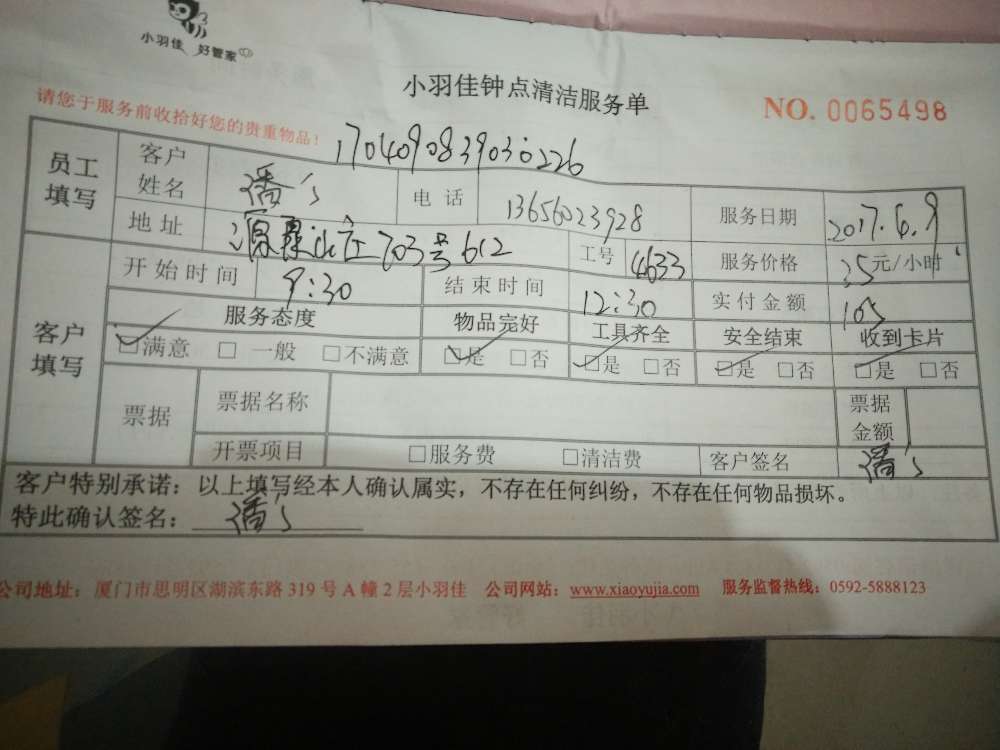 小羽佳 好管家
小羽佳钟点清洁服务单
NO. 0065498
请您于服务前收拾好您的贵重物品!
1704090839030226
员工填写 客户姓名 潘 电话 13656023928 服务日期 2017.6.9
地址 703号612 工号 4633 服务价格 35元/小时
客户填写 开始时间 9:30 结束时间 12:30 实付金额 105
服务态度 物品完好 工具齐全 安全结束 收到卡片
☑满意 □一般 □不满意 ☑是 □否 ☑是 □否 ☑是 □否 ☑是 □否
票据 票据名称 票据金额
开票项目 □服务费 □清洁费 客户签名 潘
客户特别承诺：以上填写经本人确认属实，不存在任何纠纷，不存在任何物品损坏。
特此确认签名： 潘
公司地址：厦门市思明区湖滨东路 319 号 A 幢 2 层小羽佳 公司网站：www.xiaoyujia.com 服务监督热线：0592-5888123